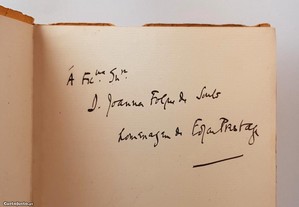 Á Ex.ma Sn.ra
D. Joanna Folque de Souto
homenagem de Edgar Prestage
CustoJusto.pt